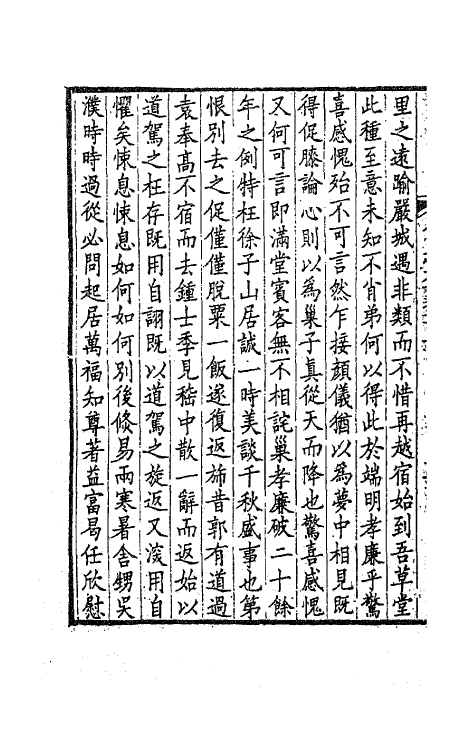 里之遠踰嚴城遇非類而不惜再越宿始到吾草堂
此種至意未知不肖弟何以得此於端明孝廉乎驚
喜感愧殆不可言然乍接顔儀猶以為夢中相見既
得促膝論心則以為巢子真從天而降也驚喜感愧
又何可言即滿堂賓客無不相詫巢孝廉破二十餘
年之例特枉徐子山居誠一時美談千秋盛事也第
恨別去之促僅僅脫粟一飯遂復返斾昔郭有道過
袁奉高不宿而去鍾士季見嵇中散一辭而返始以
道駕之枉存既用自詡既以道駕之旋返又滾用自
懼矣悚息悚息如何如何別後倏易兩寒暑舎甥吴
濮時時過從必問起居萬福知尊著益富曷任欣慰